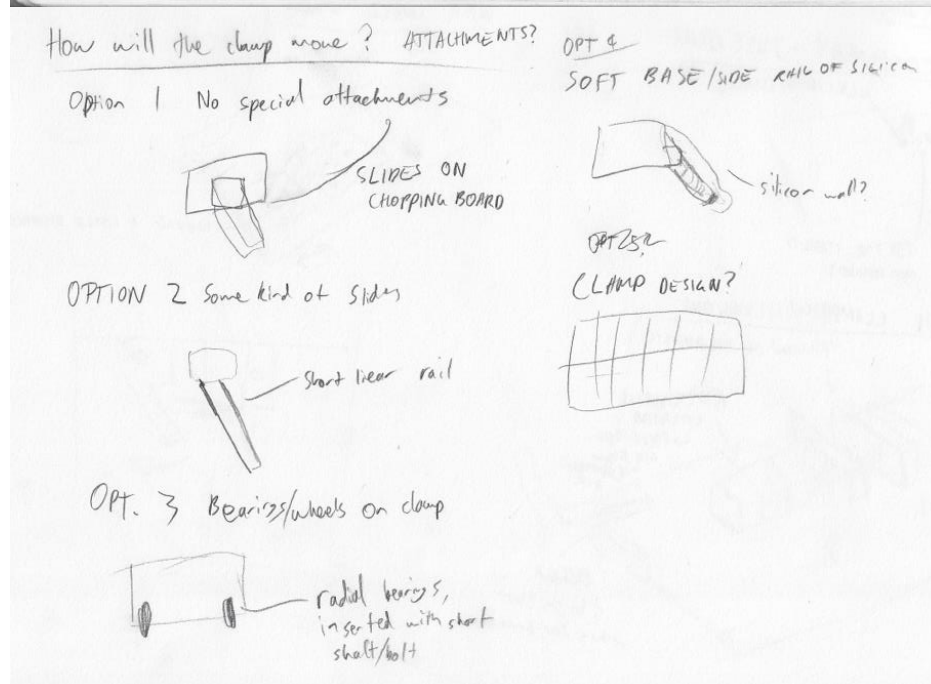 How will the clamp move? ATTACHMENTS?
Option 1 No special attachments
SLIDES ON
CHOPPING BOARD
OPTION 2 Some kind of slides
short linear rail
OPT. 3 Bearings/wheels on clamp
radial bearings,
inserted with short
shaft/bolt
OPT 4
SOFT BASE/SIDE RAIL OF SILICON
silicon wall?
CLAMP DESIGN?